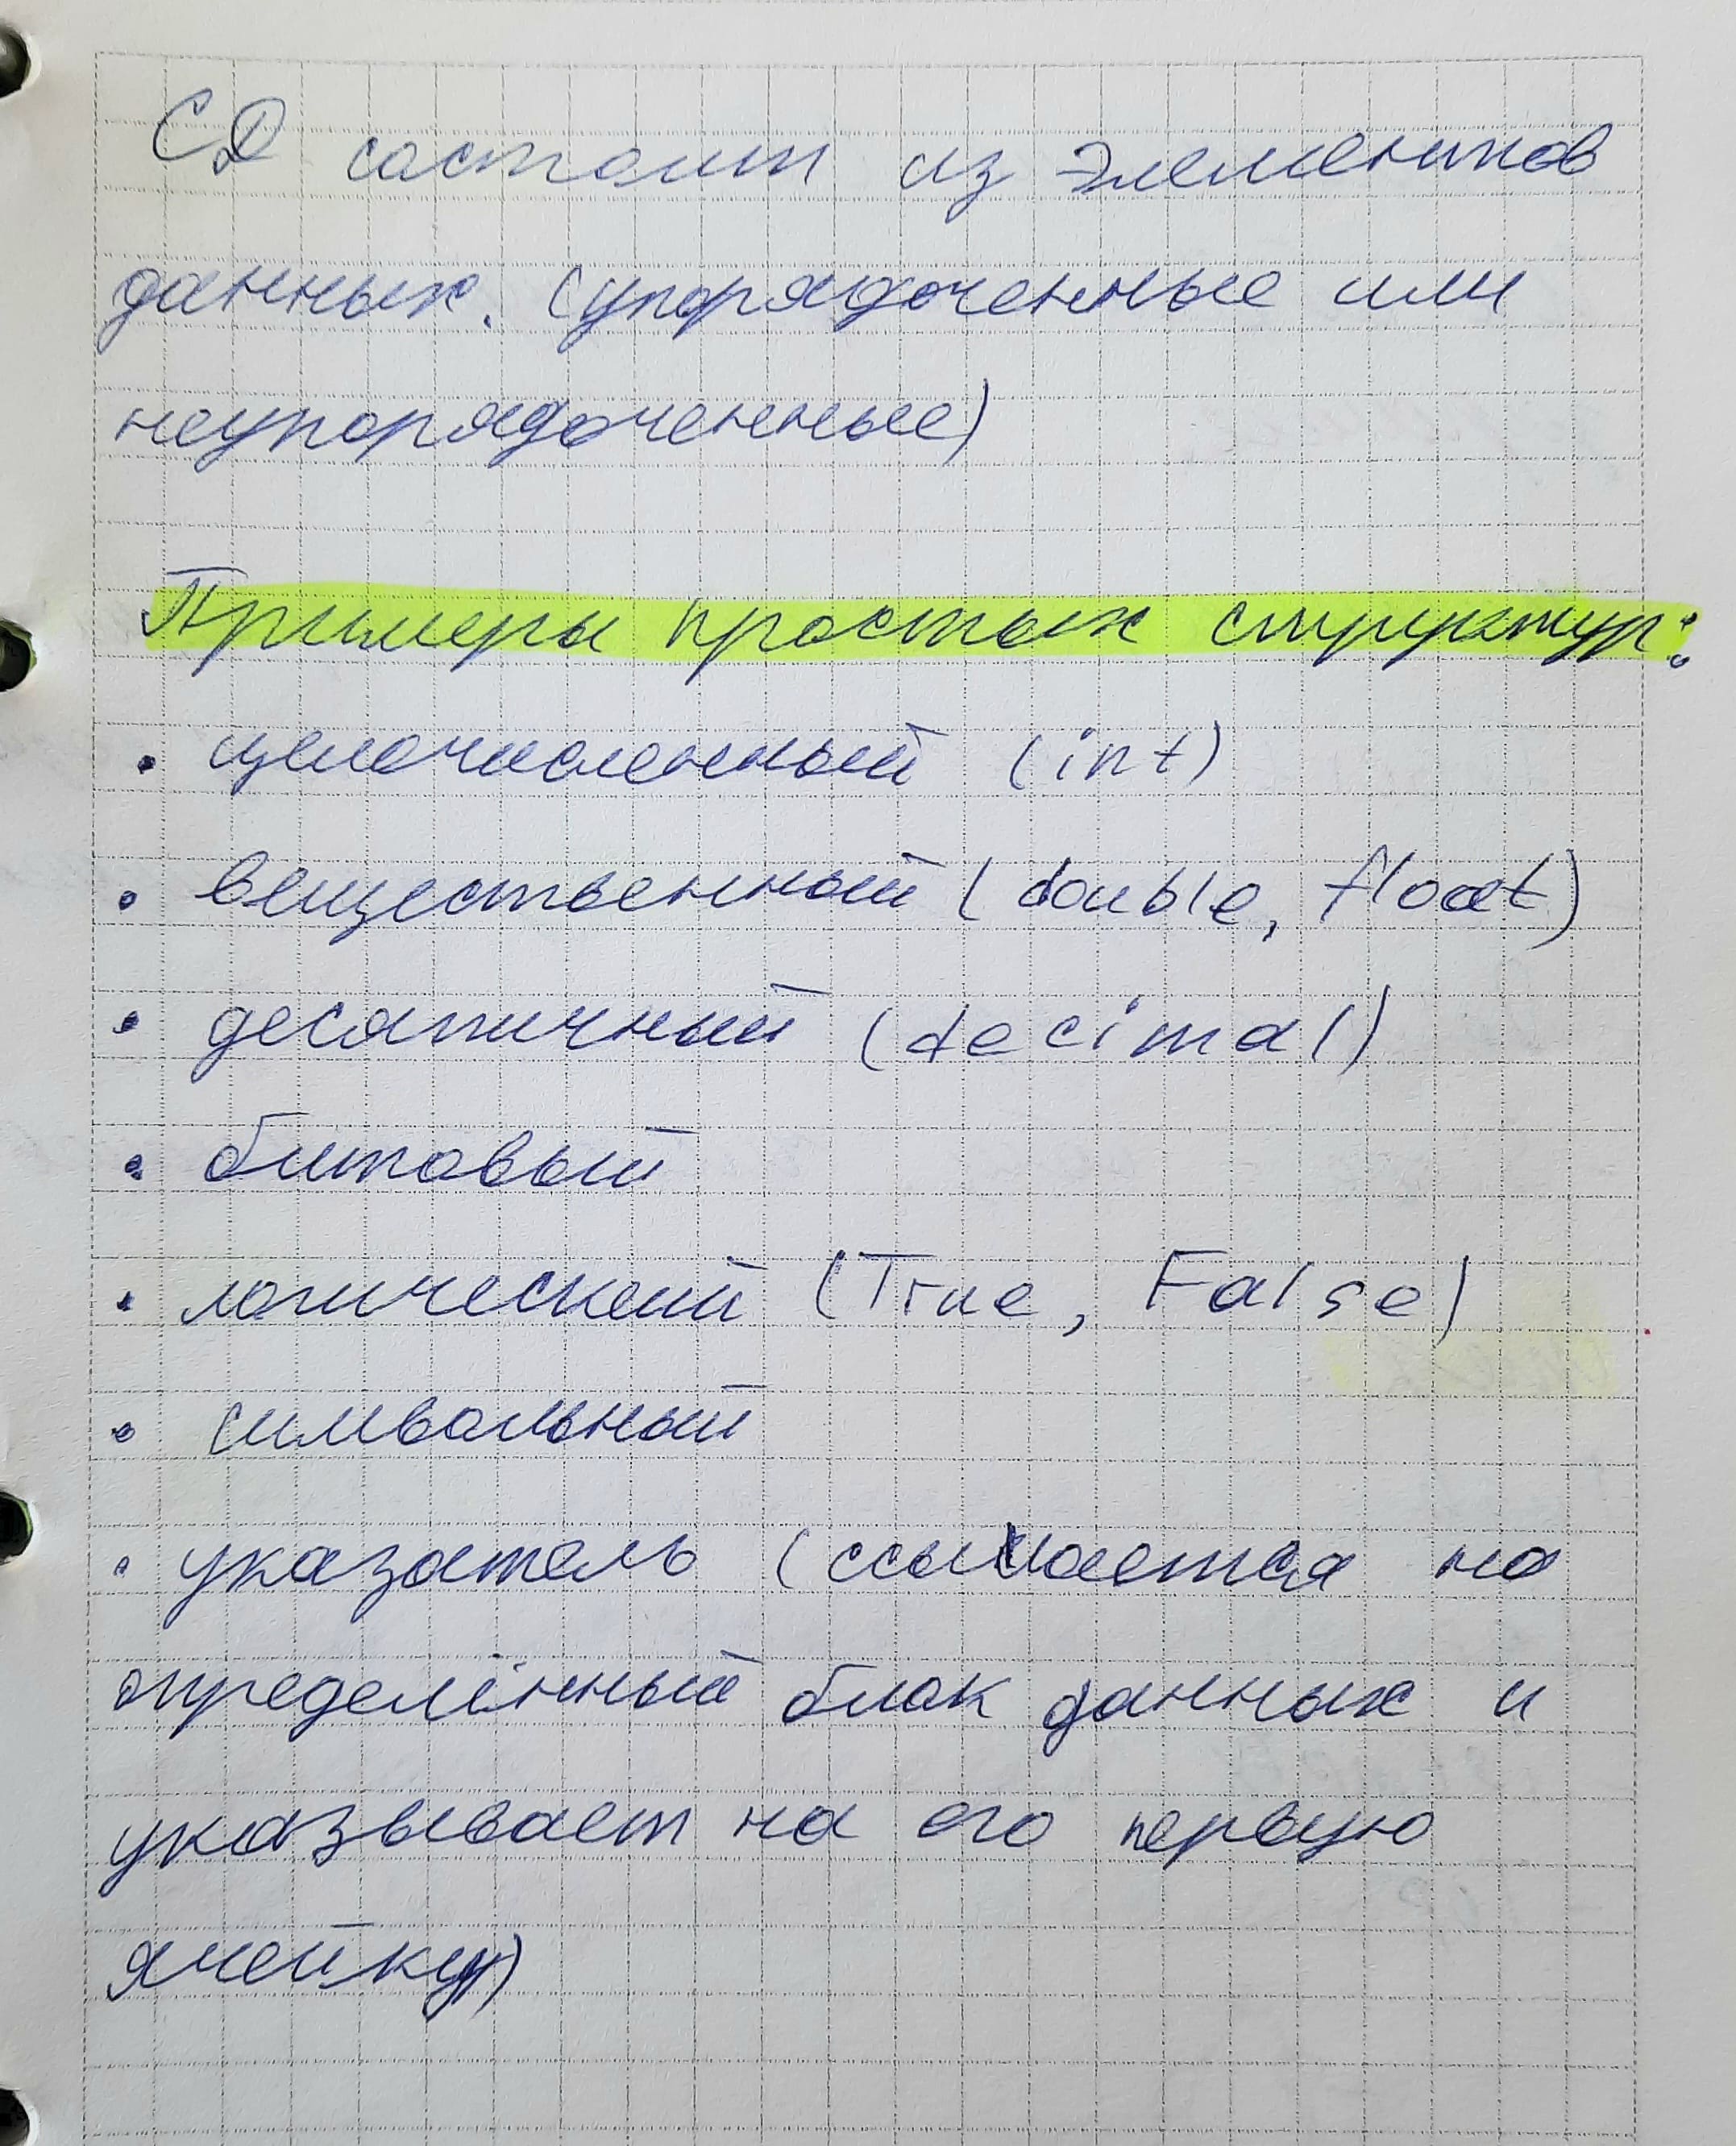 СД состоит из элементов
данных. (упорядоченные или
неупорядоченные)
Примеры простых структур:
• целочисленный (int)
• вещественный (double, float)
• десятичный (decimal)
• битовый
• логический (True, False)
• символьный
• указатель (ссылается на
определённый блок данных и
указывает на его первую
ячейку)